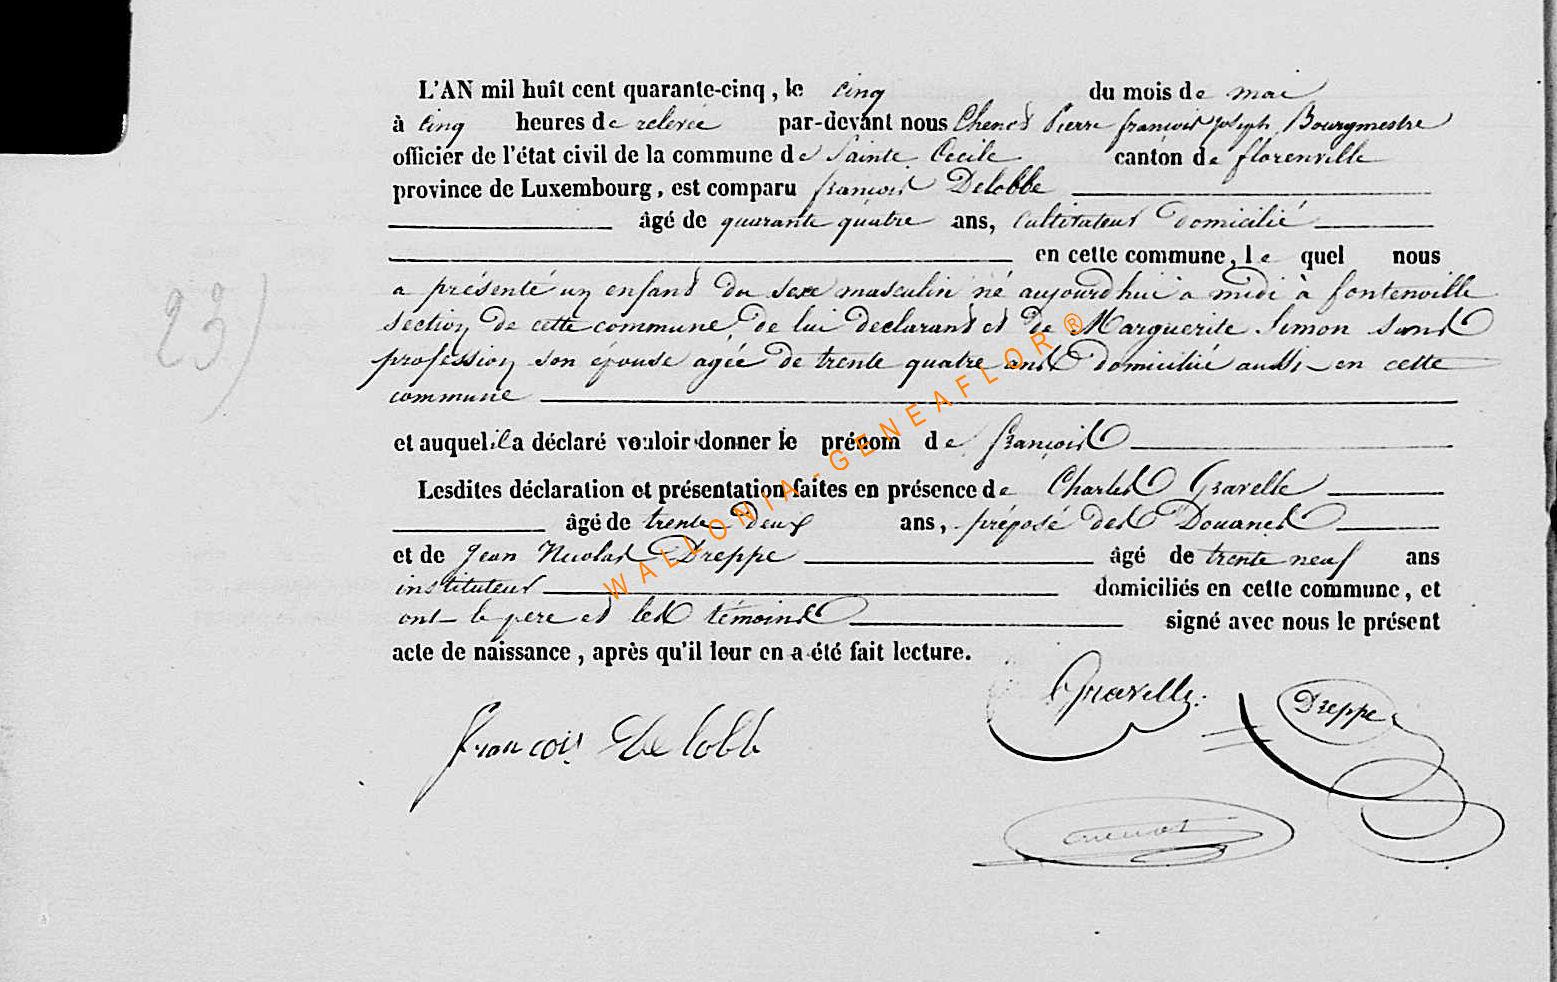 L'AN mil huit cent quarante-cinq, le cinq du mois de mai
à cinq heures de relevée par-devant nous Chenot Pierre françois joseph, Bourgmestre
officier de l'état civil de la commune de Sainte Cecile canton de florenville
province de Luxembourg, est comparu françois Delobbe
âgé de quarante quatre ans, cultivateur domicilié
en cette commune, le quel nous
a présenté un enfant du sexe masculin né aujourd'hui a midi à fontenoille
section de cette commune, de lui declarant et de Marguerite Simon sans
profession son épouse agée de trente quatre ans domiciliée aussi en cette
commune
et auquel il a déclaré vouloir donner le prénom de françois
Lesdites déclaration et présentation faites en présence de Charles Gravelle
âgé de trente deux ans, préposé des Douanes
et de Jean Nicolas Dreppe âgé de trente neuf ans
instituteur domiciliés en cette commune, et
ont le pere et les témoins signé avec nous le présent
acte de naissance, après qu'il leur en a été fait lecture.
23)
Gravelle.
Dreppe
françois Delobb
Chenot
WALLONIA-GENEAFLOR ®